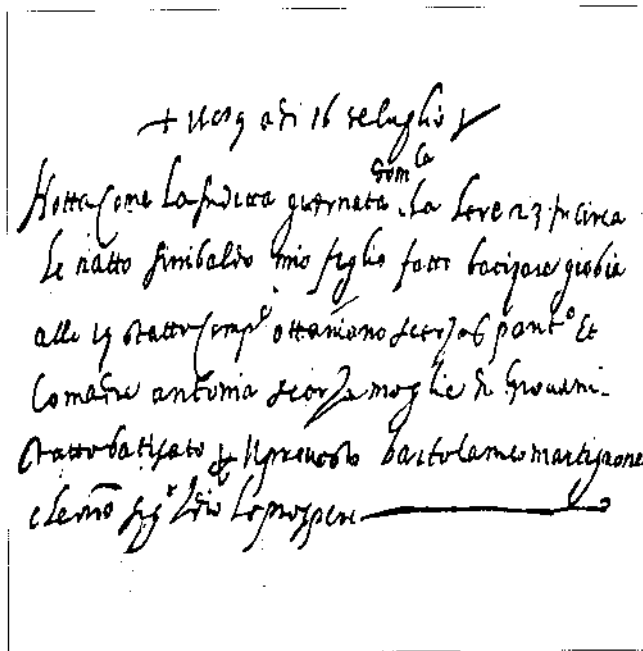 + 1609 a di 16 de luglio
dom ca
Notta Come La sudetta giornata La sera 23 in circa
he natto sinibaldo mio figlio fatto batizare giobia
alli 19 statto Comp ottaviano scorza Et
Comadre antonia scorza moglie di Giovani
statto batizato Il prevosto bartolameo martignone
sig Idio Lo prospere